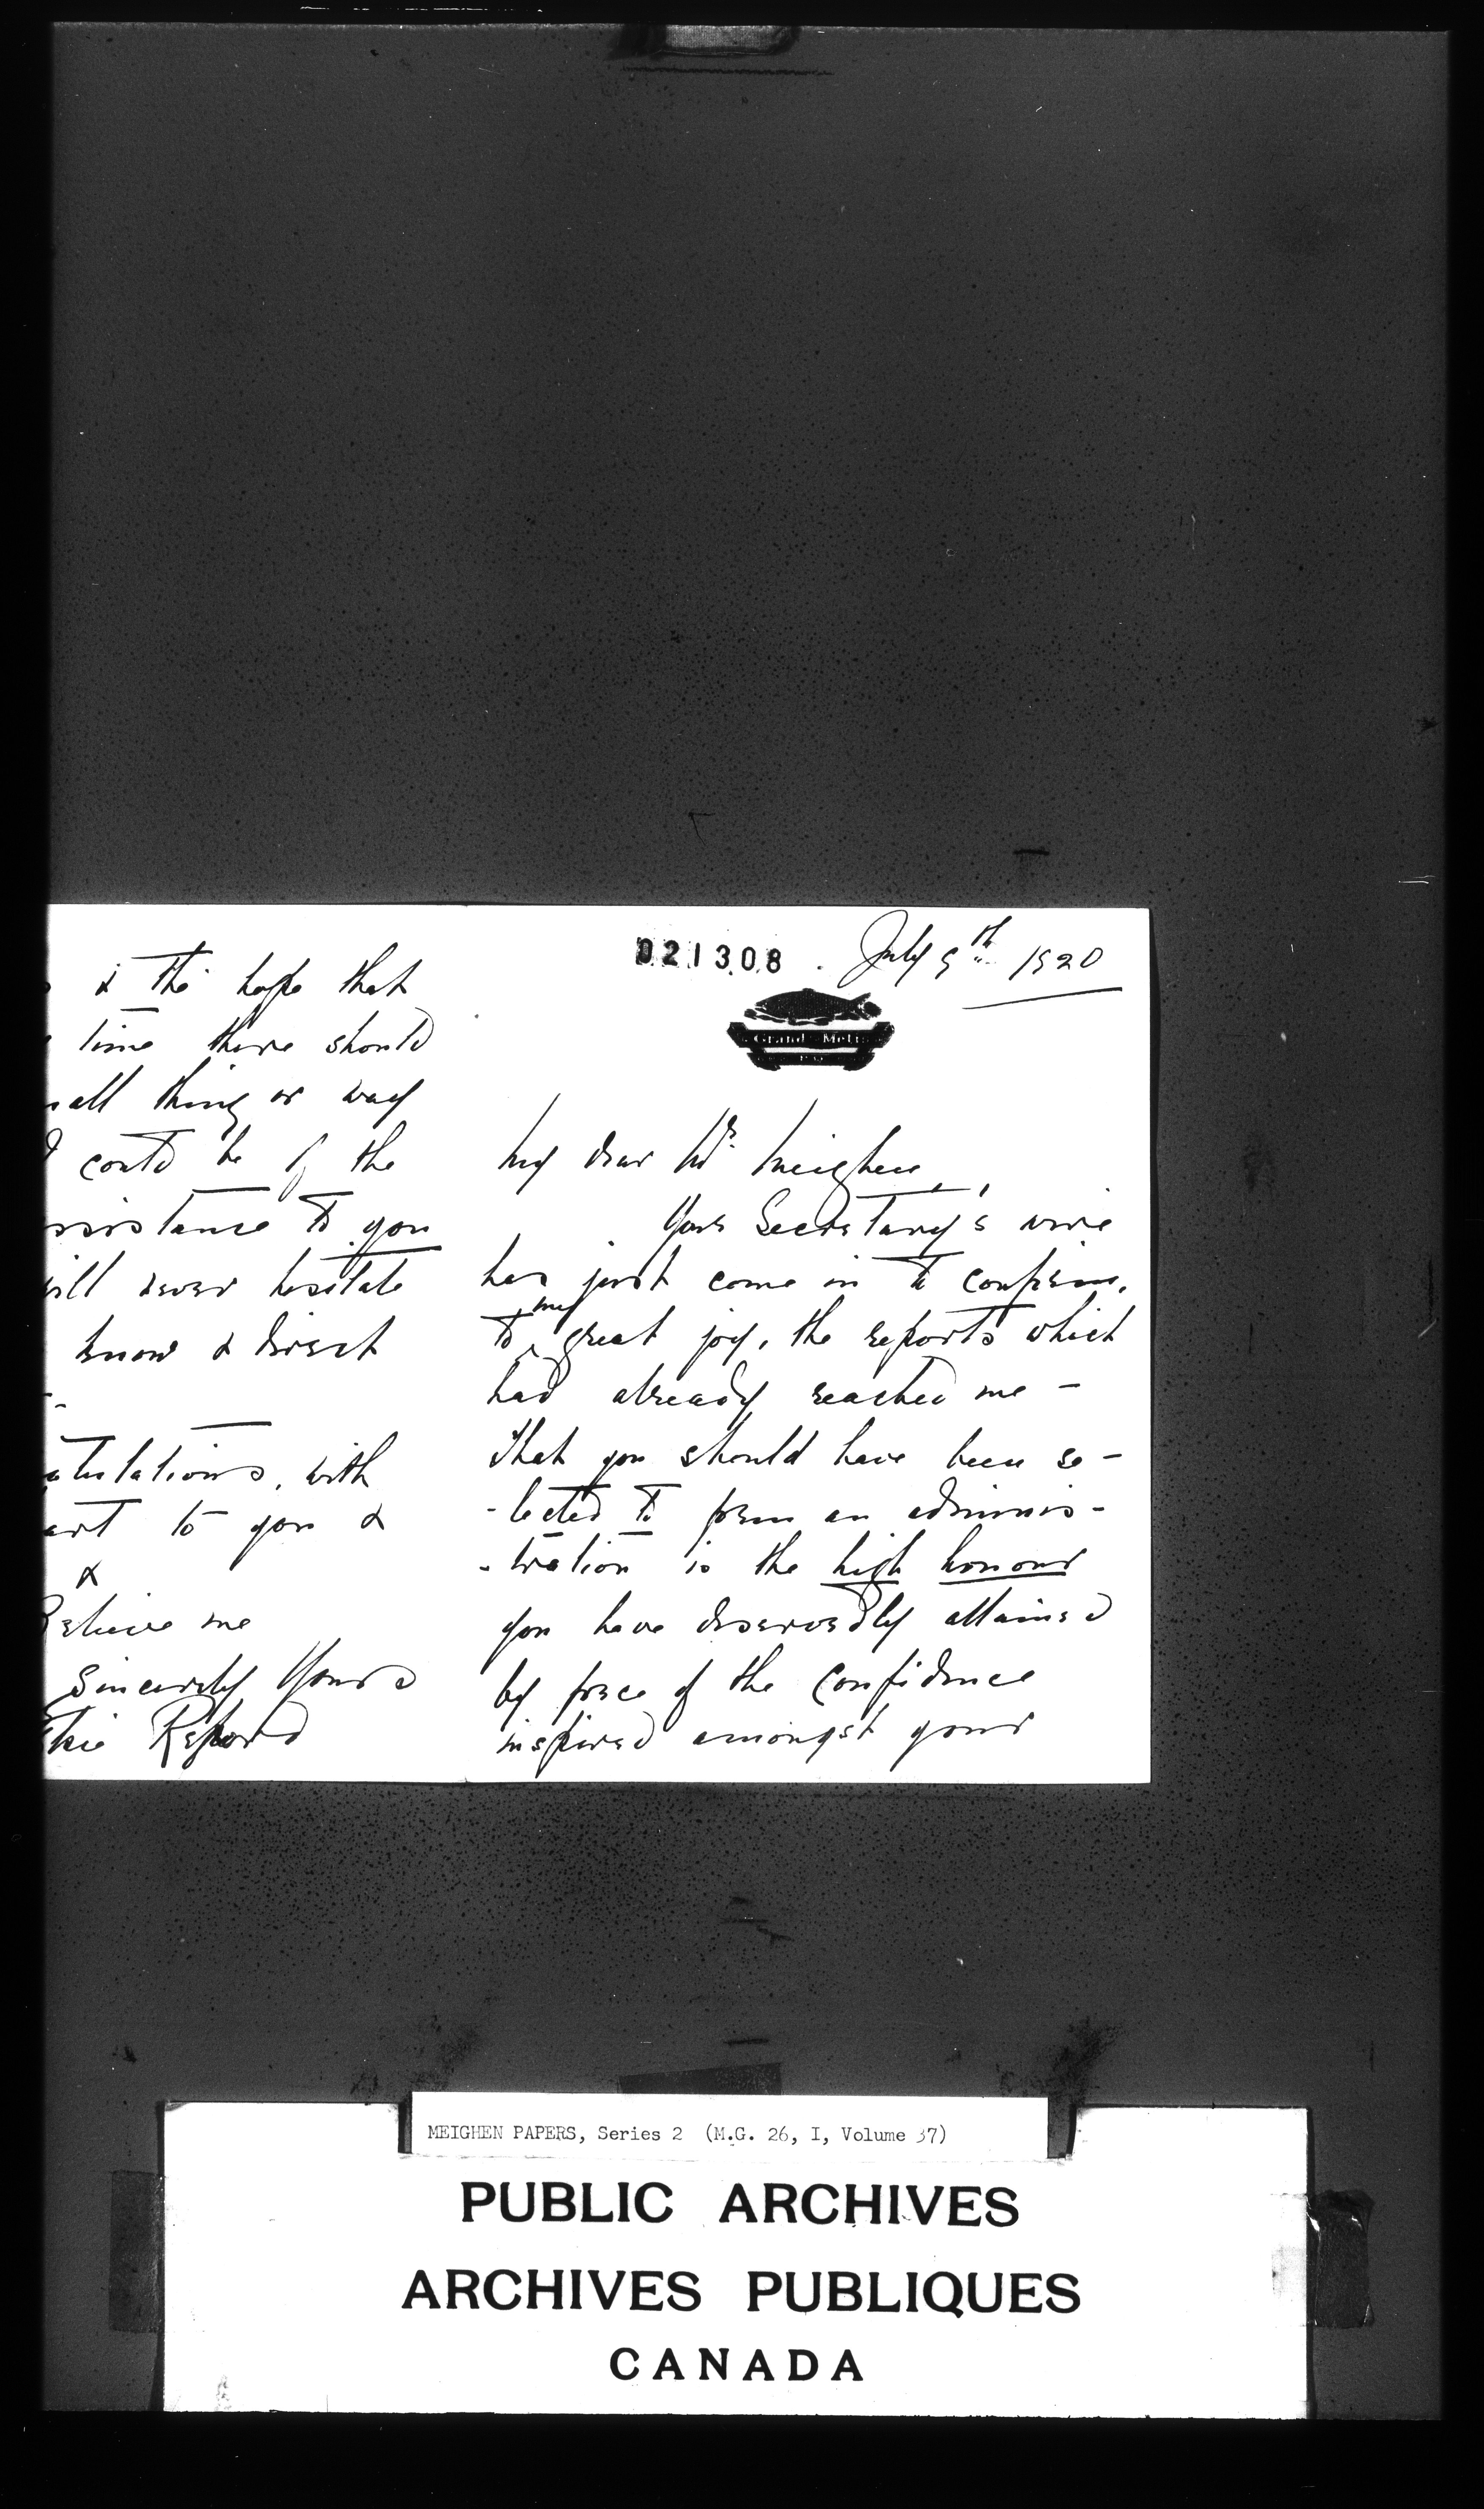 & the hope that
time there should
all thing or way
I could be of the
ssistance to you
ill never hesitate
know & direct
-
atulations, with
art to you &
&
Believe me
Sincerely Yours
kie Reford
021308
July 9th 1920
Grand Metis
P.Q.
My dear Mr Meighen,
Your Secretary's wire
has just come in to confirm,
to my great joy, the reports which
had already reached me -
That you should have been se-
-lected to form an adminis-
-tration is the high honour
you have deservedly attained
by force of the confidence
inspired amongst your
MEIGHEN PAPERS, Series 2 (M.G. 26, I, Volume 37)
PUBLIC ARCHIVES
ARCHIVES PUBLIQUES
CANADA